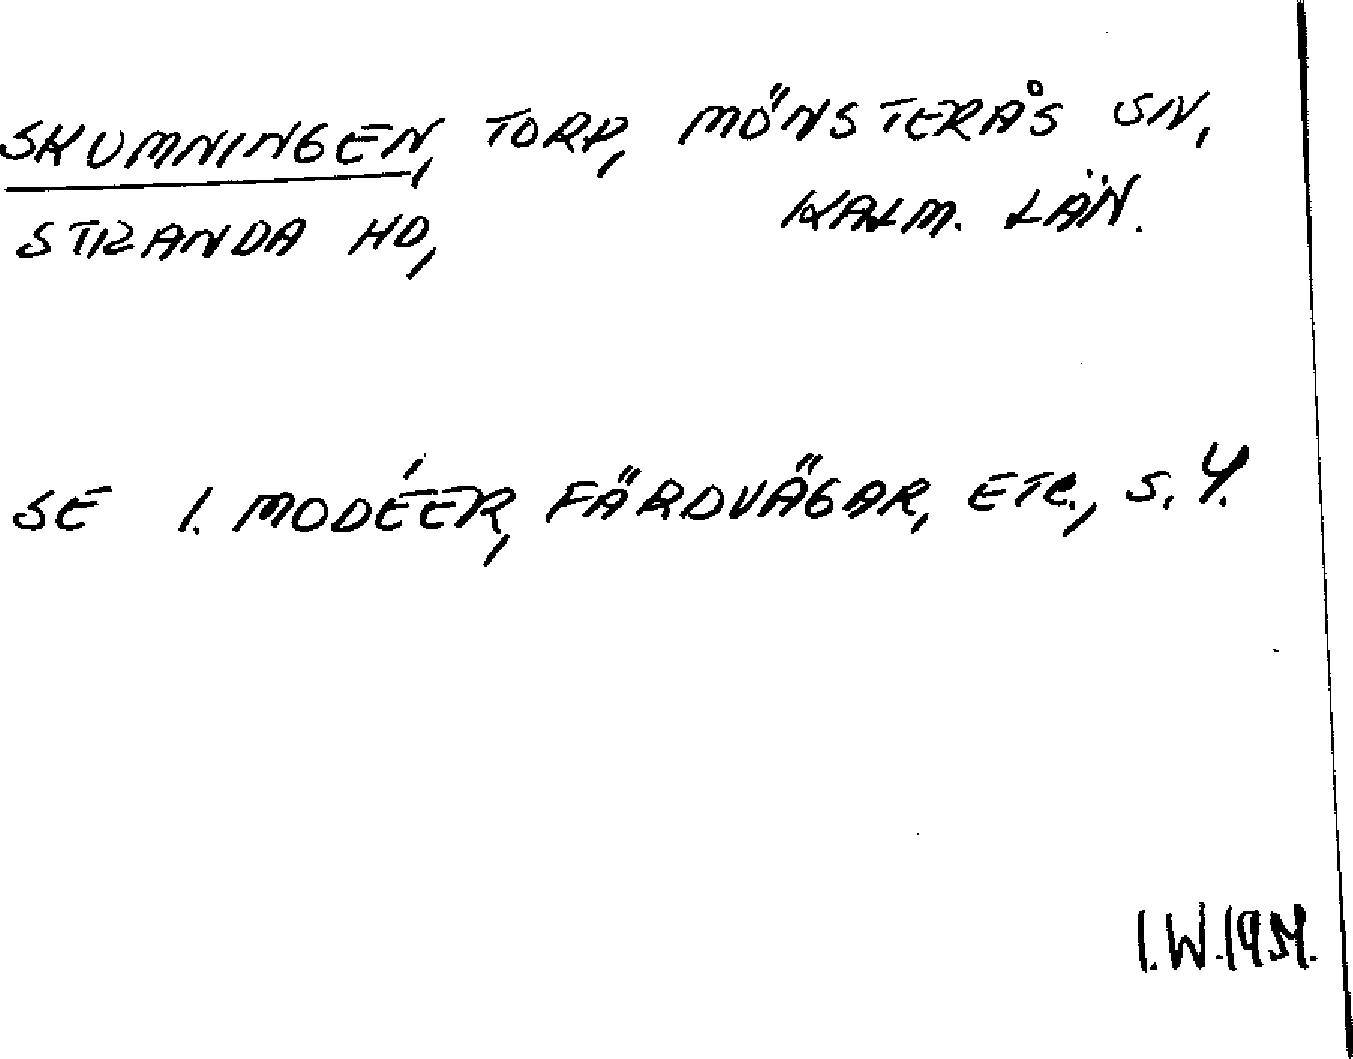 SKUMNINGEN, TORP, MÖNSTERÅS SN,
STRANDA HD, KALM. LÄN.
SE I. MODÉER, FÄRDVÄGAR, ETC., S. 4.
I.W. 1954.